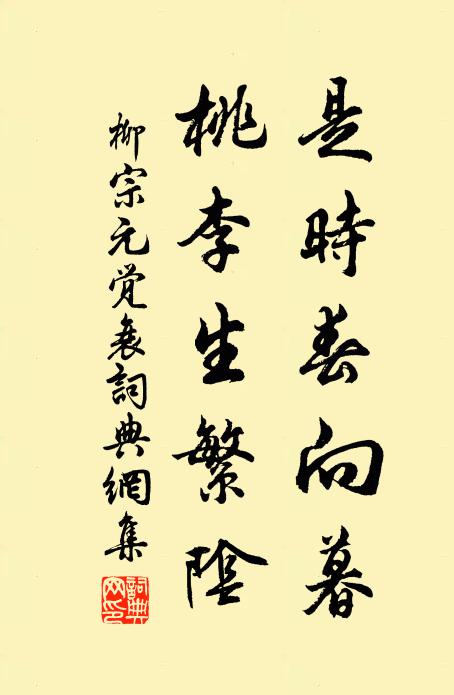 是時春向暮
桃李生繁陰
柳宗元覚衰詞典網集
詞典網印